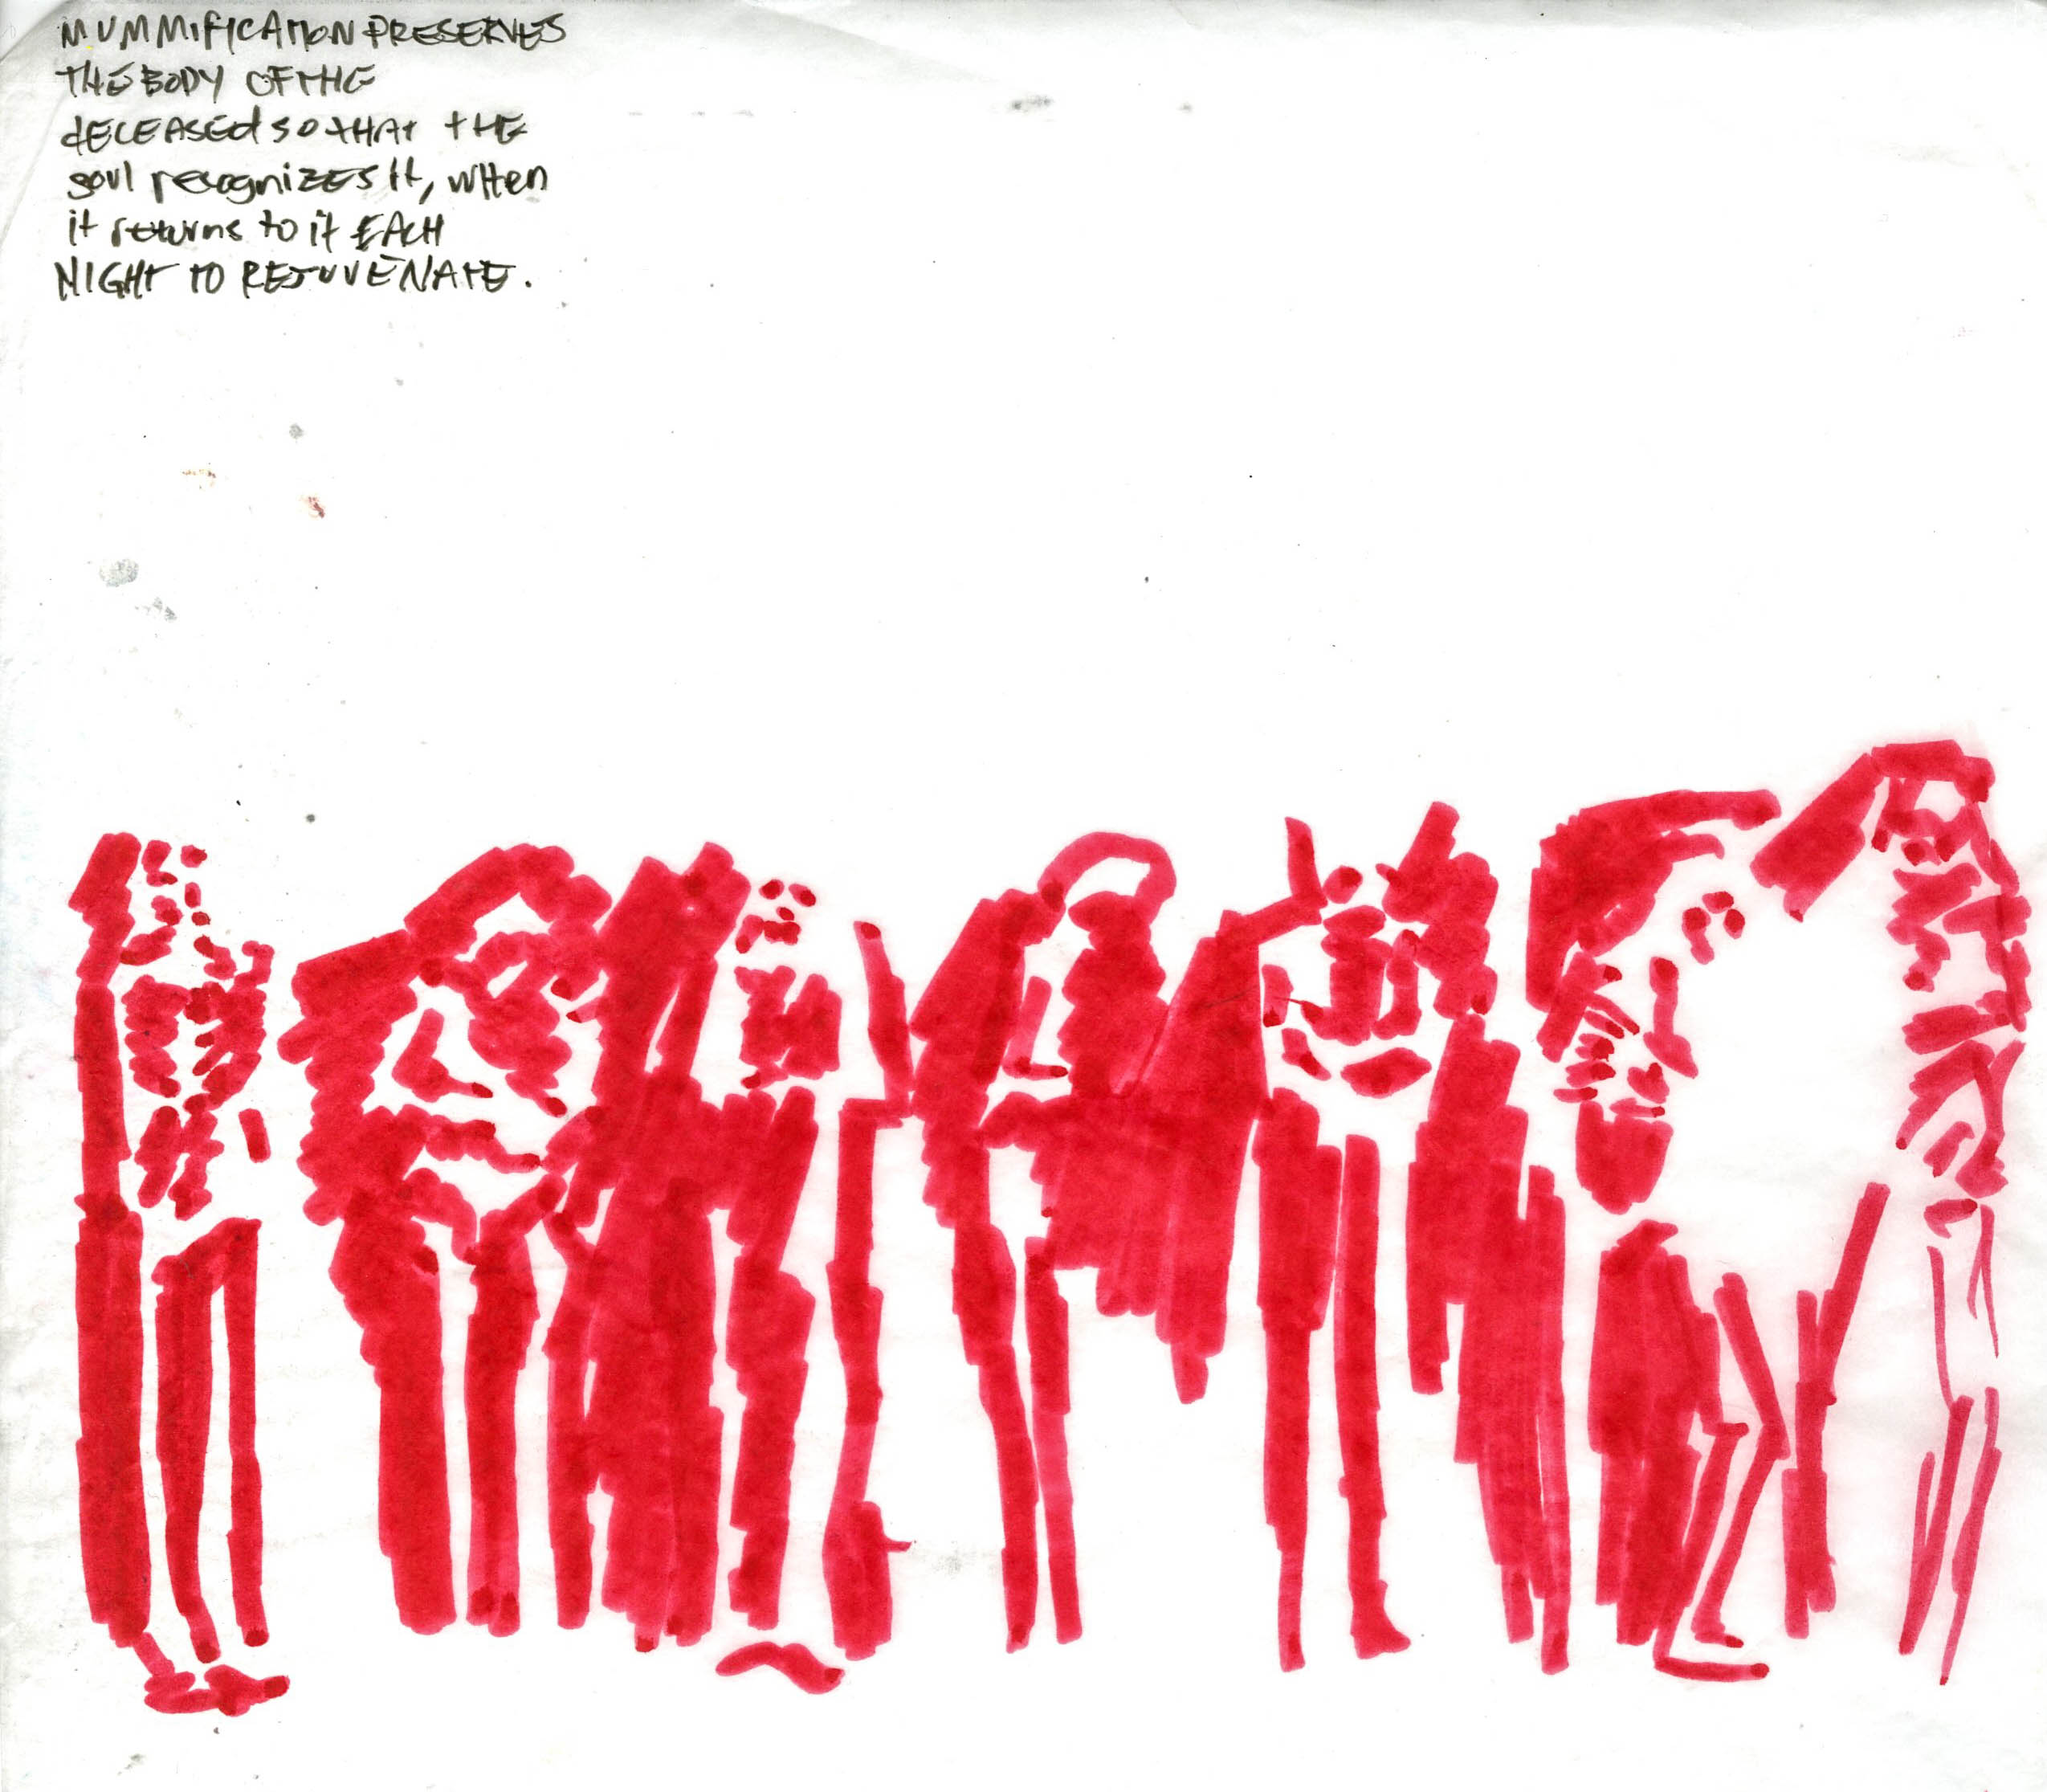 MUMMIFICATION PRESERVES
THE BODY OF THE
dECEASEd SO THAT THE
soul recognizES it, wHen
it returns to it EACH
NIGHT TO REJUVENATE.